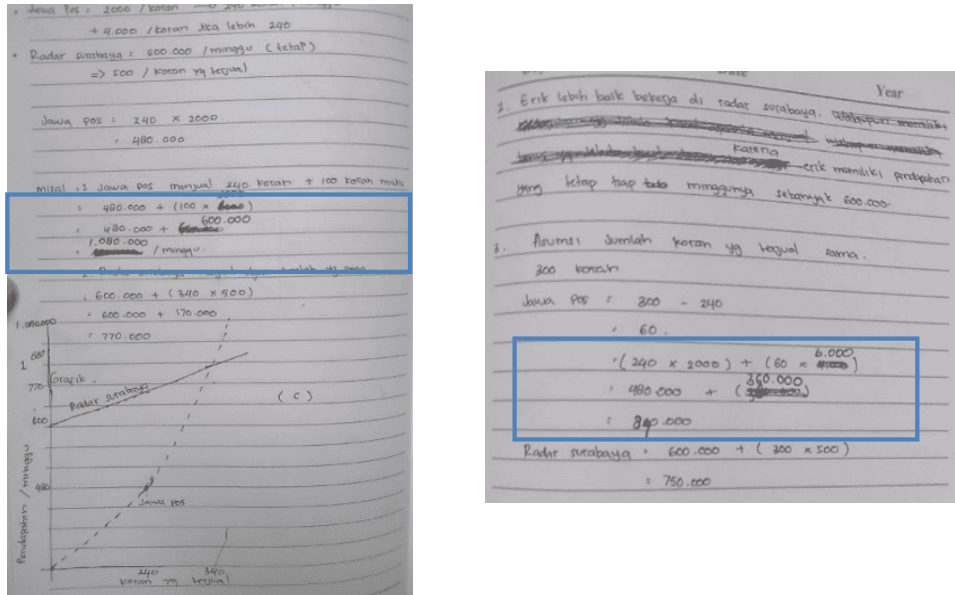 Jawa Pos = 2000 / koran 240
+ 4.000 / koran jika lebih 240
• Radar Surabaya = 600.000 / minggu (tetap)
=> 500 / koran yg terjual
Jawa pos = 240 x 2000
= 480.000
misal : 1 Jawa pos menjual 240 koran + 100 koran maka
= 480.000 + (100 x )
= 480.000 + 600.000
= 1.080.000 / minggu.
2.
= 600.000 + (340 x 500)
= 600.000 + 170.000
= 770.000
1.080.000
1
770
600
480
Grafik.
Radar Surabaya
(c)
Jawa pos
Pendapatan / minggu
240
340
koran yg terjual
Date
Year
2. Erik lebih baik bekerja di radar surabaya.
karena
erik memiliki pendapatan
yang tetap tiap minggunya sebanyak 600.000.
3. Asumsi Jumlah koran yg terjual sama.
300 koran
Jawa pos = 300 - 240
= 60.
= (240 x 2000) + (60 x 6.000)
= 480.000 + (360.000)
= 840.000
Radar surabaya = 600.000 + (300 x 500)
= 750.000